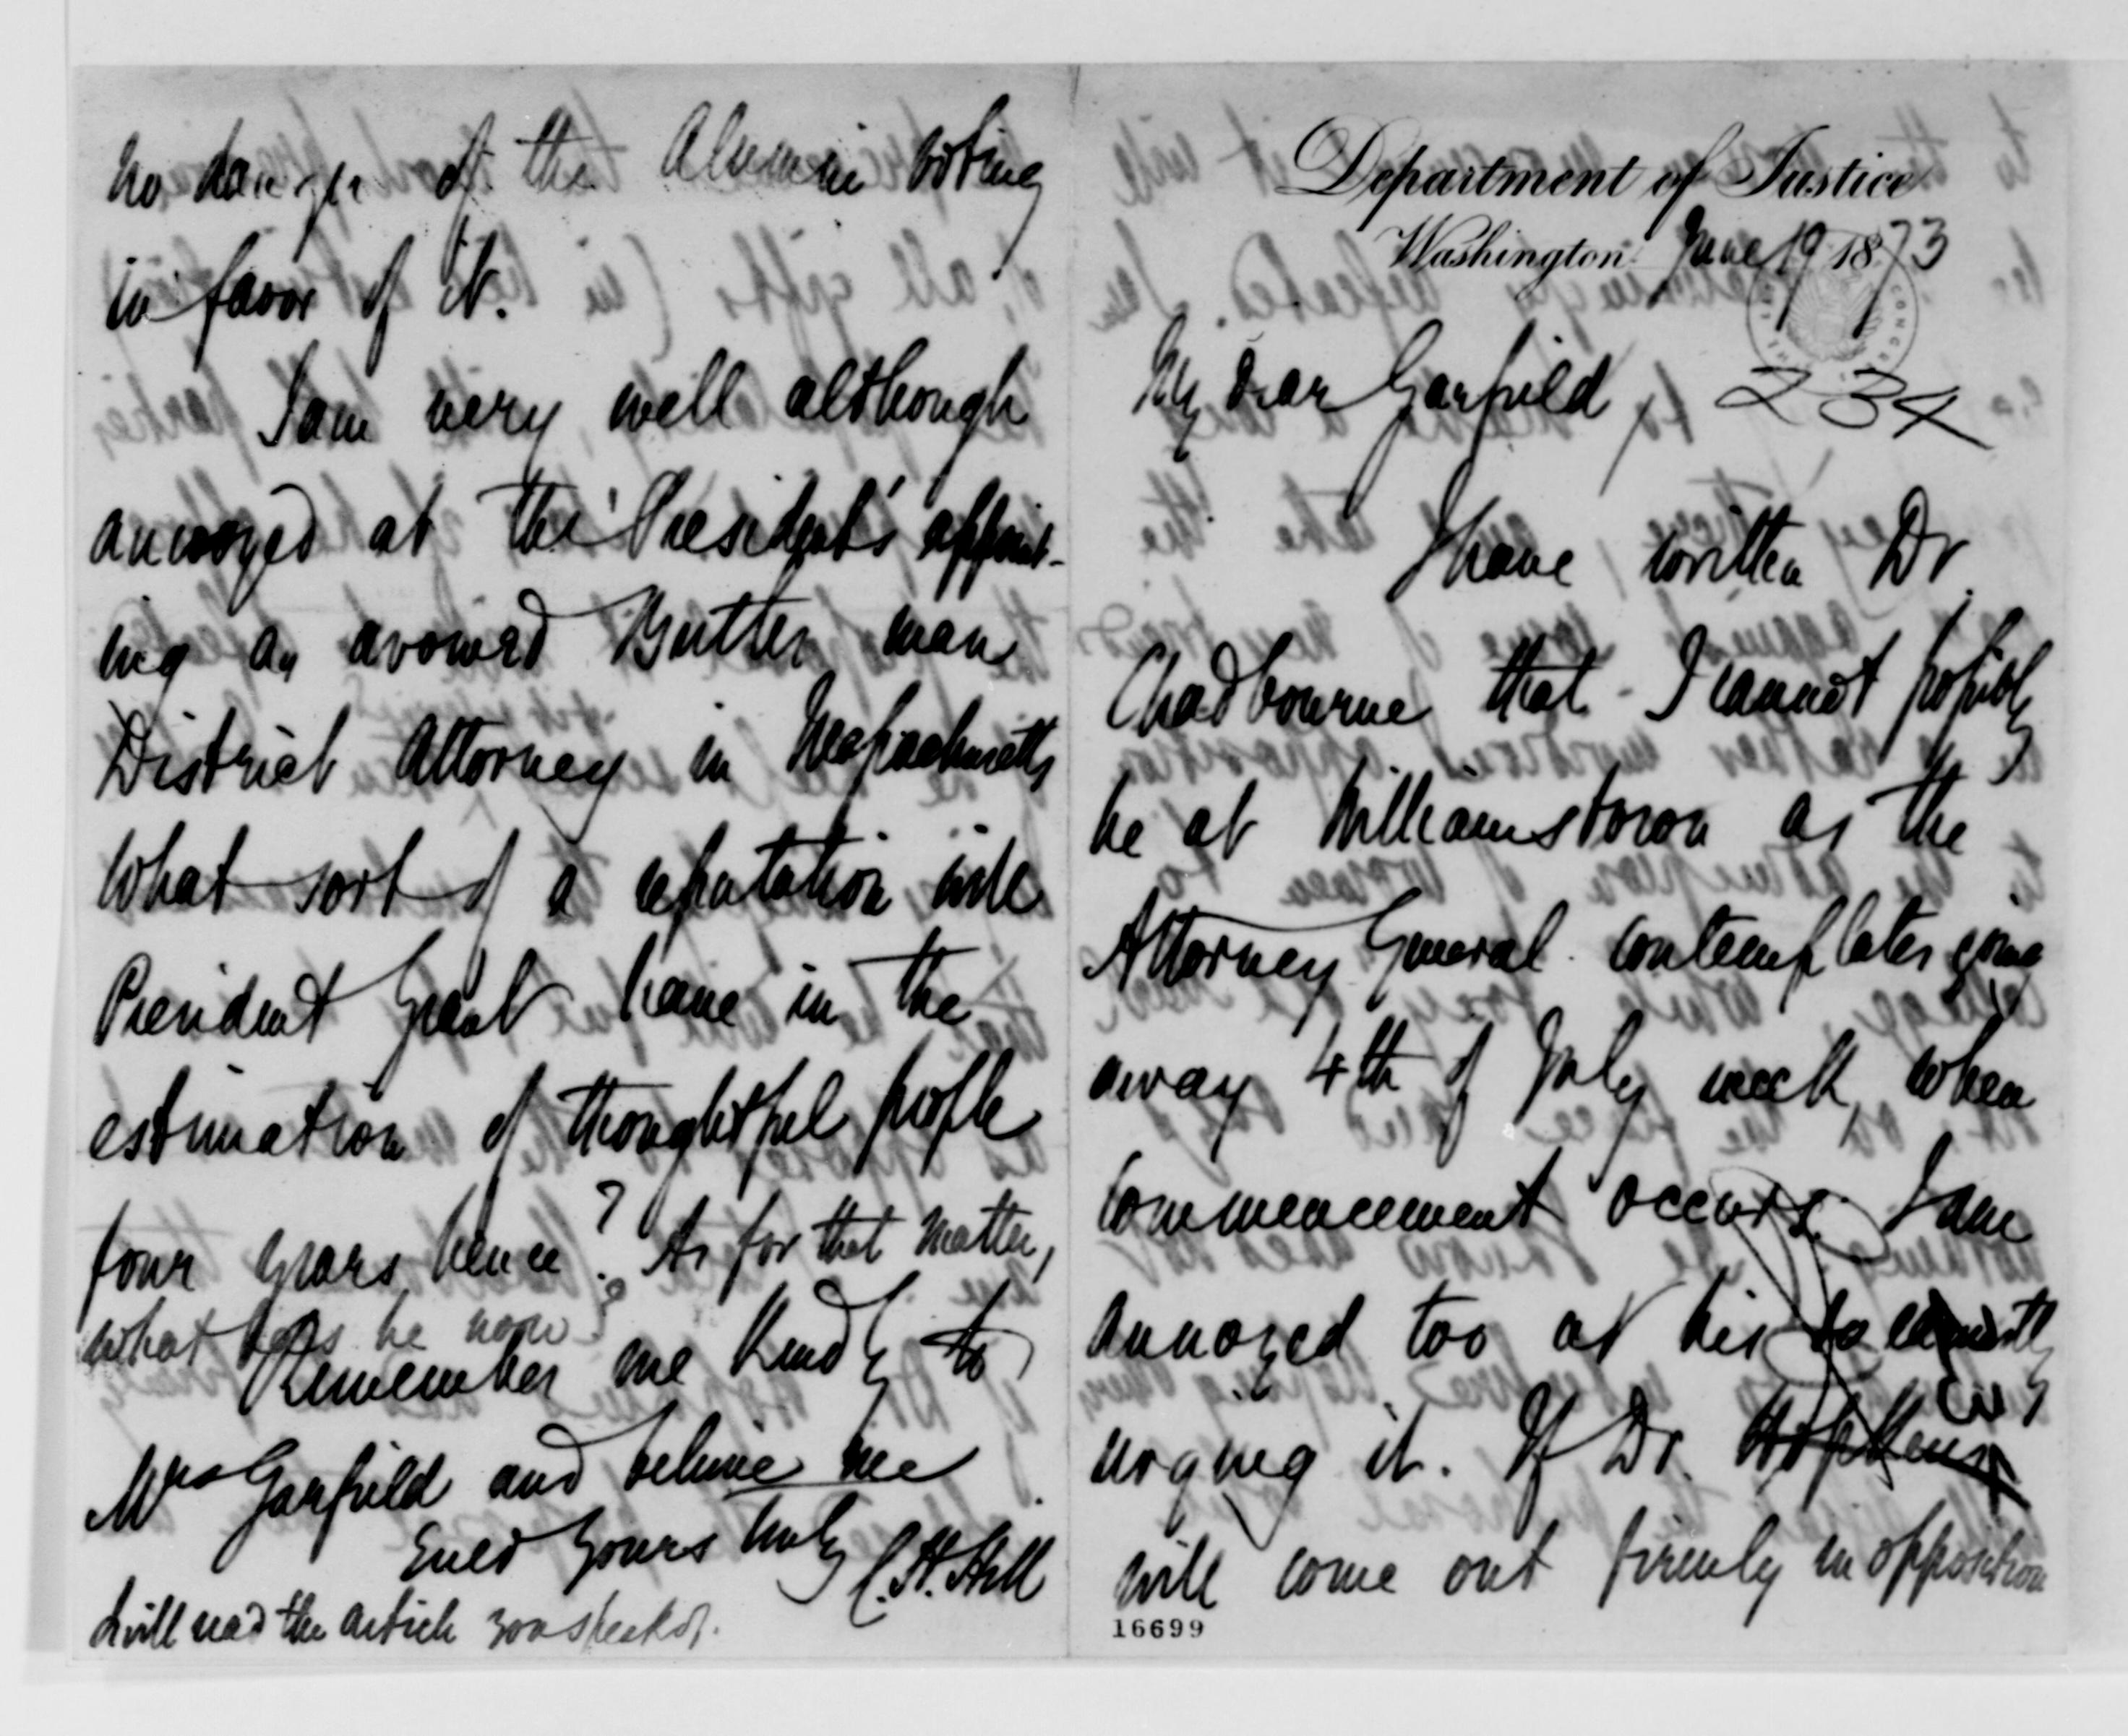 Department of Justice
Washington June 19 1873
My Dear Garfield, 234
I have written Dr
Chadbourne that I cannot possibly
be at Williamstown as the
Attorney General contemplates going
away 4th of July week, when
Commencement occurs. I am
annoyed too at his
urging it. If Dr. Hopkins
will come out firmly in opposition
16699
no danger of the Alumni voting
in favor of it.
I am very well although
annoyed at the President's appoint-
ing an avowed Butler man
District Attorney in Massachusetts
What sort of a reputation will
President Grant have in the
estimation of thoughtful people
four years hence? As for that matter,
what has he now?
Remember me kindly to
Mrs Garfield and believe me
Ever Yours truly C. H. Hill
I will read the article you speak of.